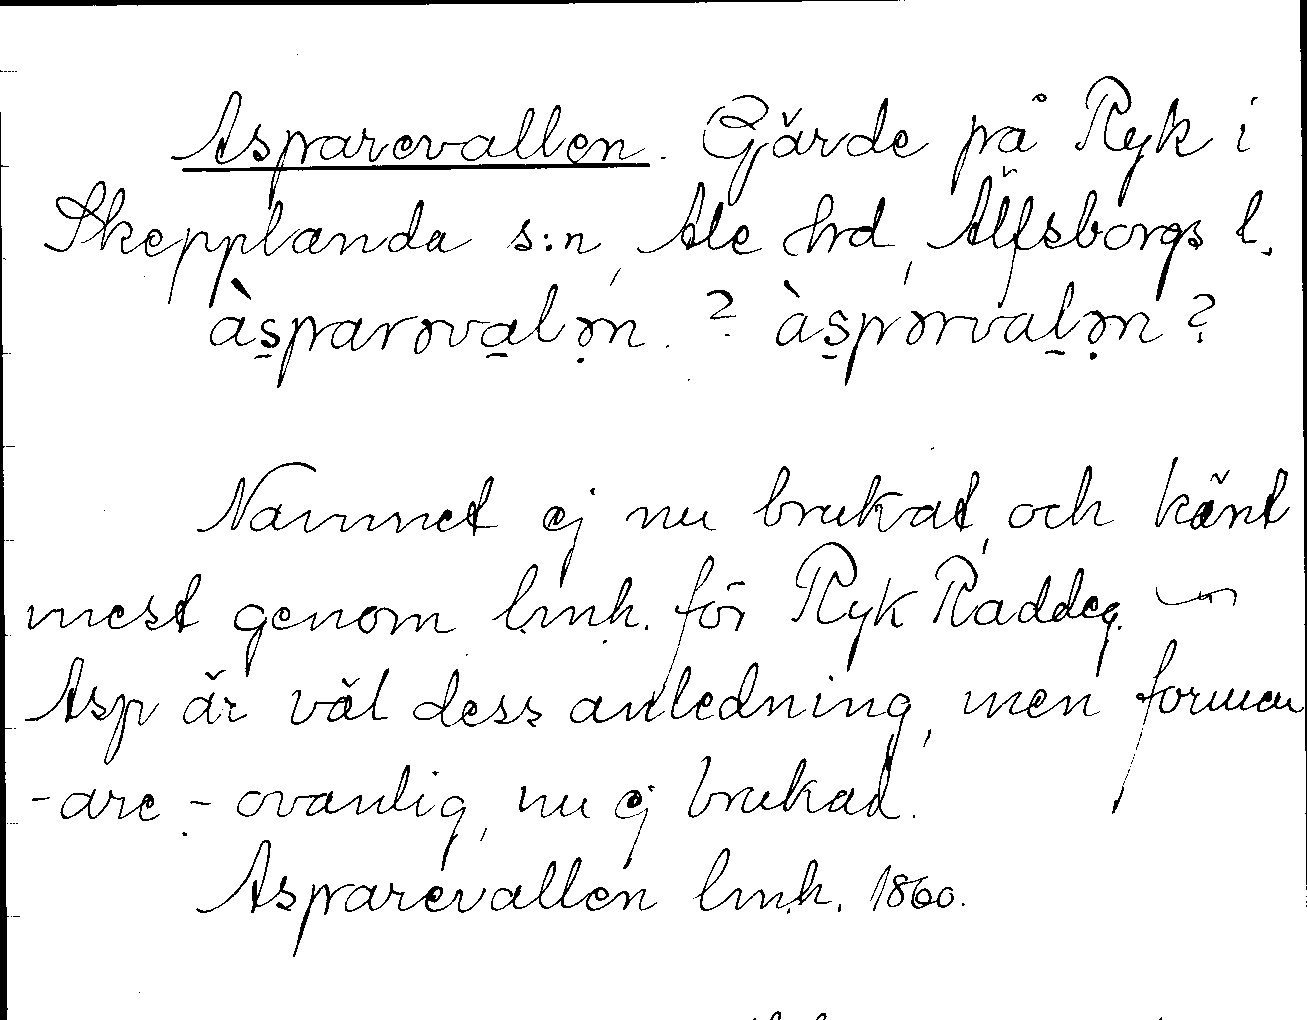 Asparevallen. Gärde på Ryk i
Skepplanda s:n, Ale hrd, Älfsborgs l.
àsparǝvalǝn. ? àspǝrvalǝn ?
Namnet ej nu brukat, och känt
mest genom lmh. för Ryk Raddeg.
Asp är väl dess anledning, men formen
-are- ovanlig, nu ej brukad.
Asparevallen lmh. 1860.